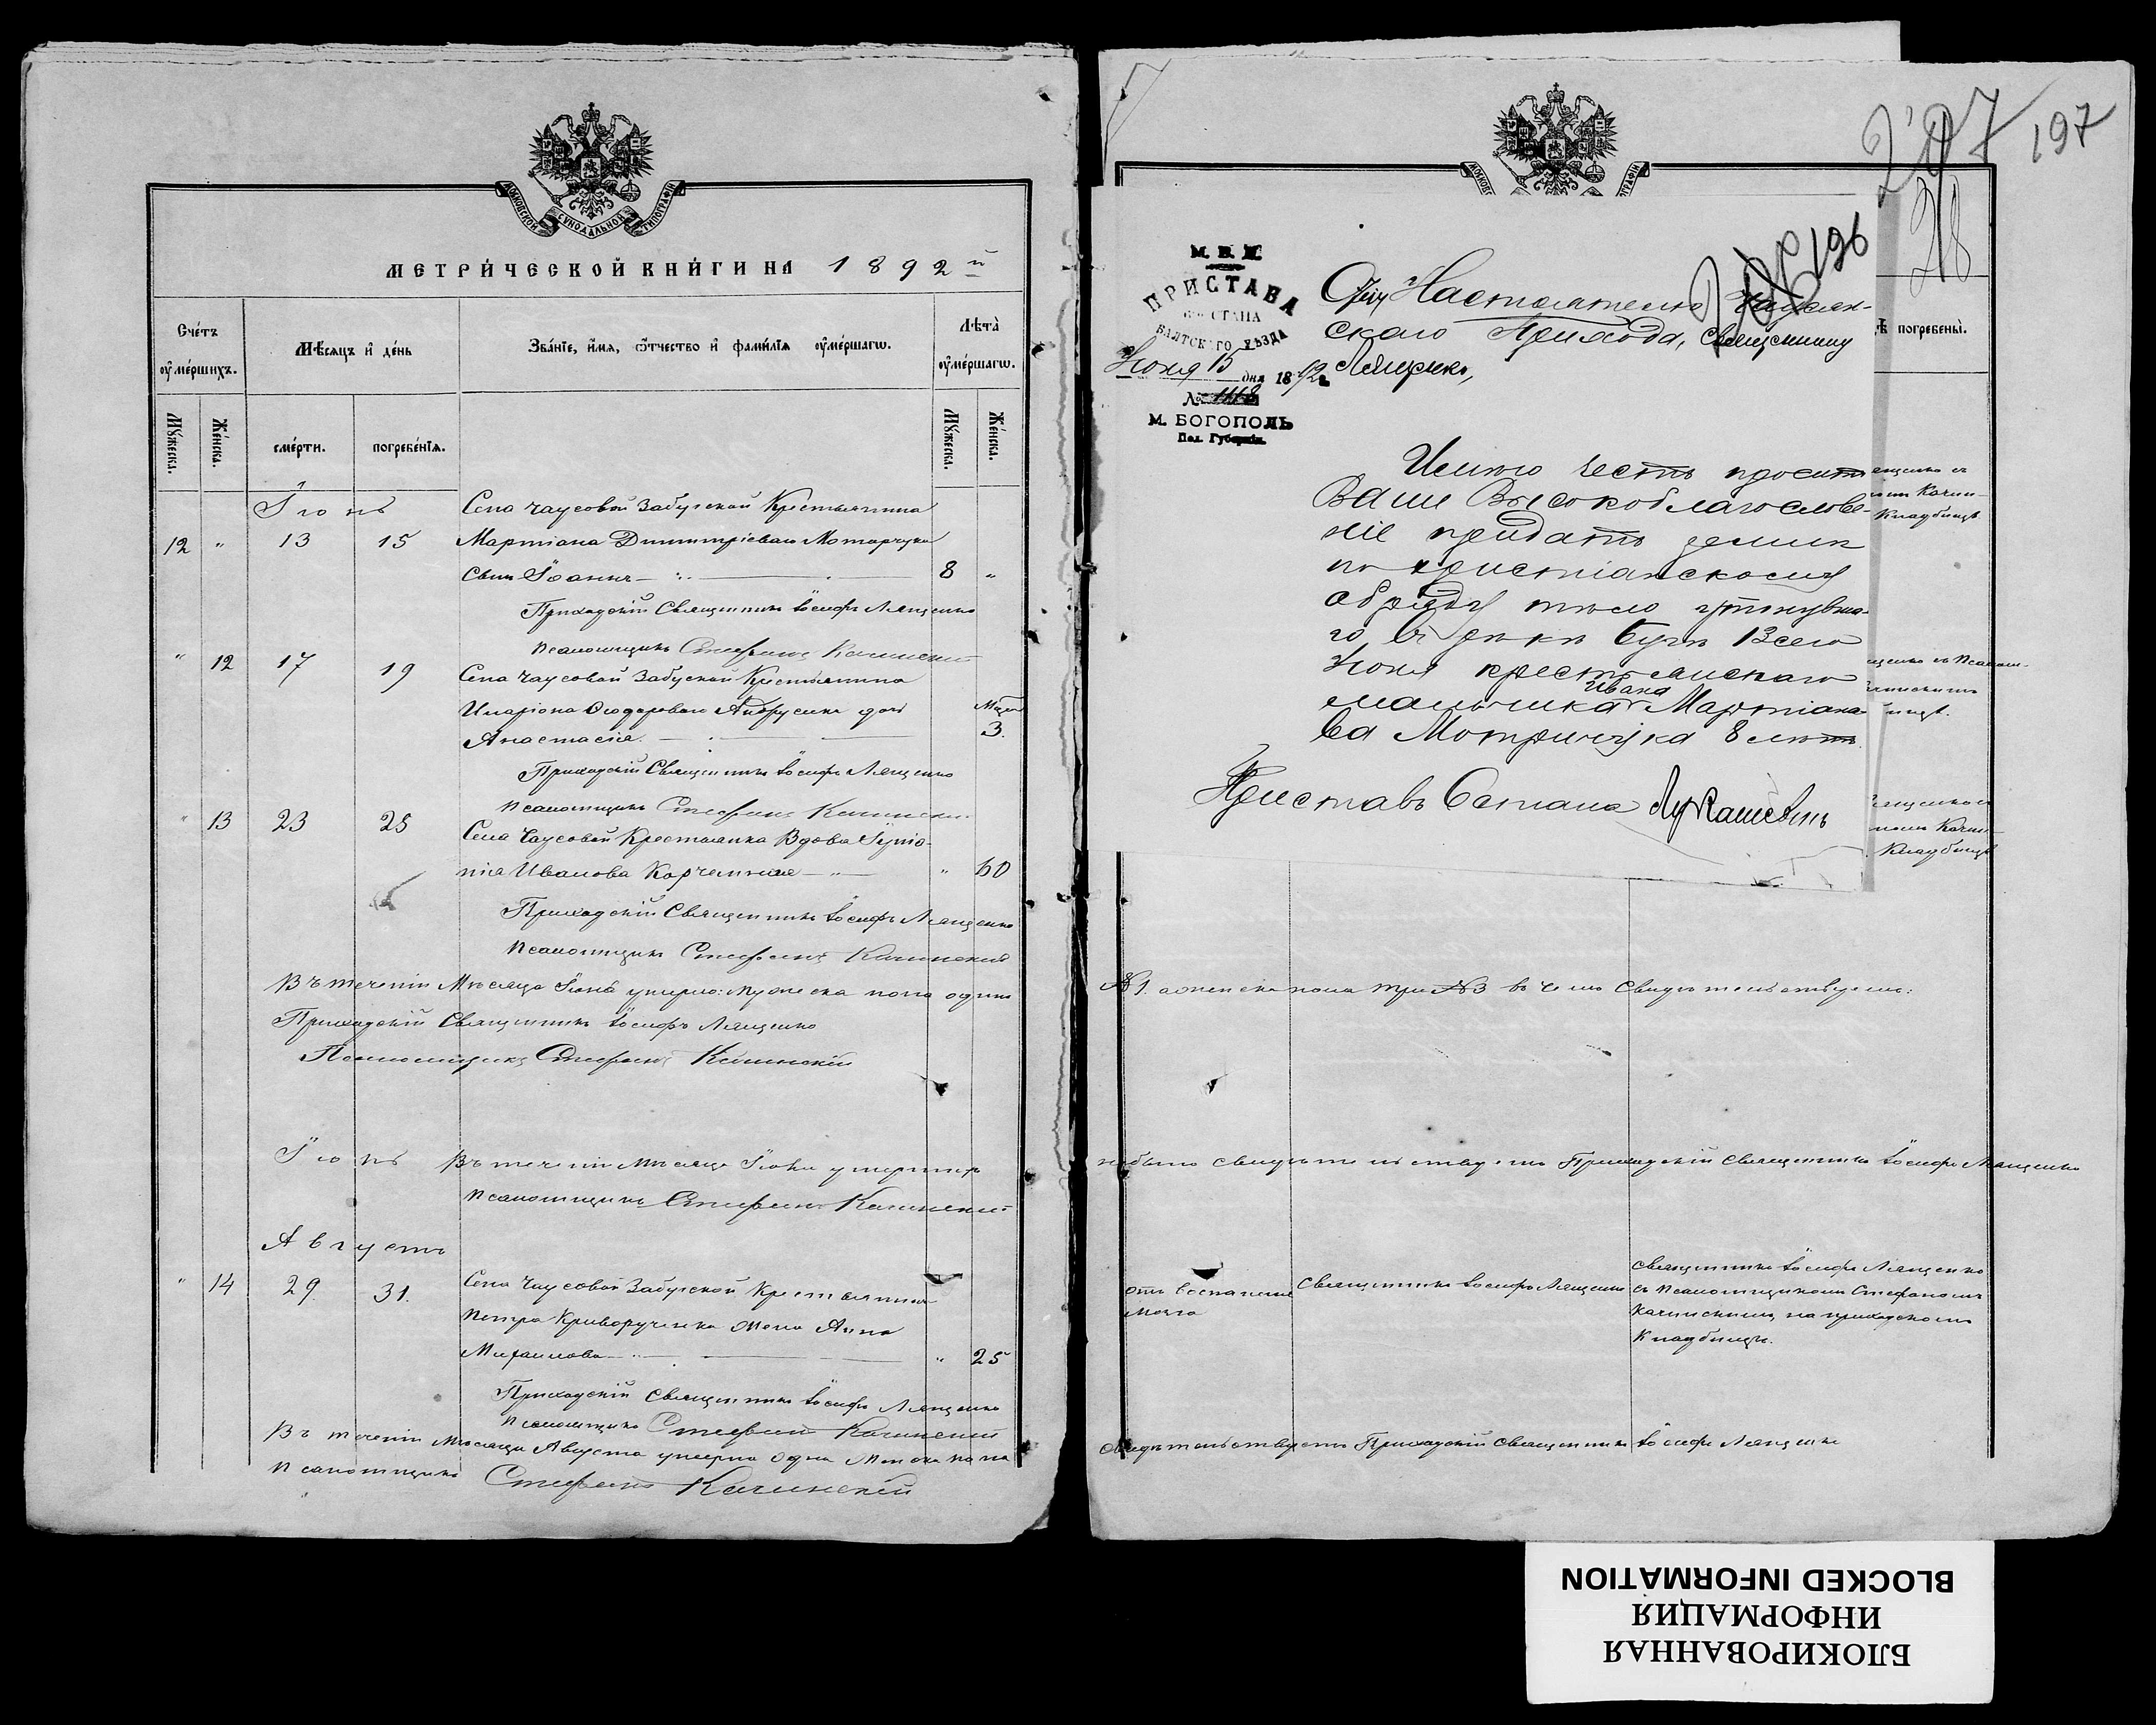 МОСКОВСКОЙ СУНОДАЛЬНОЙ ТИПОГРАФІИ
МЕТРИ́ЧЕСКОЙ КНИ́ГИ НА 1892 й
Сче́тъ ᲂу҆ме́ршихъ.
Мѣ́сяцъ и҆ де́нь
Зва́нїе, и҆́мя, ѻ҆́тчество и҆ фами́лїя ᲂу҆ме́ршагѡ.
Лѣ́та ᲂу҆ме́ршагѡ.
Мꙋ́жеска.
Же́нска.
сме́рти.
погребе́нїѧ.
Мꙋ́жеска.
Же́нска.
Іюнь
Села Чаусовой Забугской Крестьянина
12 " 13 15 Мартіана Димитріева Мотарчука
сынъ Іоаннъ 8 "
Приходскій Священникъ Іосифъ Лященко
Псаломщикъ Стефанъ Качинскій
" 12 17 19 Села Чаусовой Забугской Крестьянина
Иларіона Ѳеодорова Андрусика дочь
Анастасія. Мѣся 3.
Приходскій Священникъ Іосифъ Лященко
Псаломщикъ Стефанъ Качинскій
" 13 23 25 Села Чаусовой Крестьянка Вдова
Иванова " 60
Приходскій Священникъ Іосифъ Лященко
Псаломщикъ Стефанъ Качинскій
Въ теченіи Мѣсяца Іюня умерло: мужеска пола одинъ
Приходскій Священникъ Іосифъ Лященко
Псаломщикъ Стефанъ Качинскій
Въ теченіи мѣсяца умершихъ
Псаломщикъ Стефанъ Качинскій
Августъ
" 14 29. 31. Села Чаусовой Забугской Крестьянина
Петра Криворученка жена Анна
Михаилова " 25
Приходскій Священникъ Іосифъ Лященко
Псаломщикъ Стефанъ Качинскій
Въ теченіи Мѣсяца Августа умерла одна Женска пола
Псаломщикъ Стефанъ Качинскій
207 197
218
196
М. В. Д.
ПРИСТАВА
СТАНА
БАЛТСКОГО УѢЗДА
Іюня 15 дня 1892 г.
№ 1118
М. БОГОПОЛЬ
Под. Губерніи.
Настоятелю
скаго Прихода, Священнику
Лященко,
Имѣю честь просить
Ваше Высокоблагослове-
ніе предать землѣ
по христіанскому
обряду тѣло утонувша-
го въ рѣкѣ Бугѣ 13 сего
Іюня крестьянскаго
мальчика Ивана Мартіано-
ва Мотричука 8 лѣтъ.
Приставъ Стана Лукашевичъ
погребены̀.
Качин-
Кладбищѣ
Кладбищѣ
№ 1. а женска пола три № 3 въ чемъ Свидѣтельствуемъ:
небыло свидѣтельствуемъ Приходскій Священникъ Іосифъ Лященко
отъ воспаленія
мозга
Священникъ Іосифъ Лященко
Священникъ Іосифъ Лященко
съ Псаломщикомъ Стефаномъ
Качинскимъ, на приходскомъ
Кладбищѣ.
Свидѣтельствуетъ Приходскій Священникъ Іосифъ Лященко
БЛОКИРОВАННАЯ
ИНФОРМАЦИЯ
BLOCKED INFORMATION